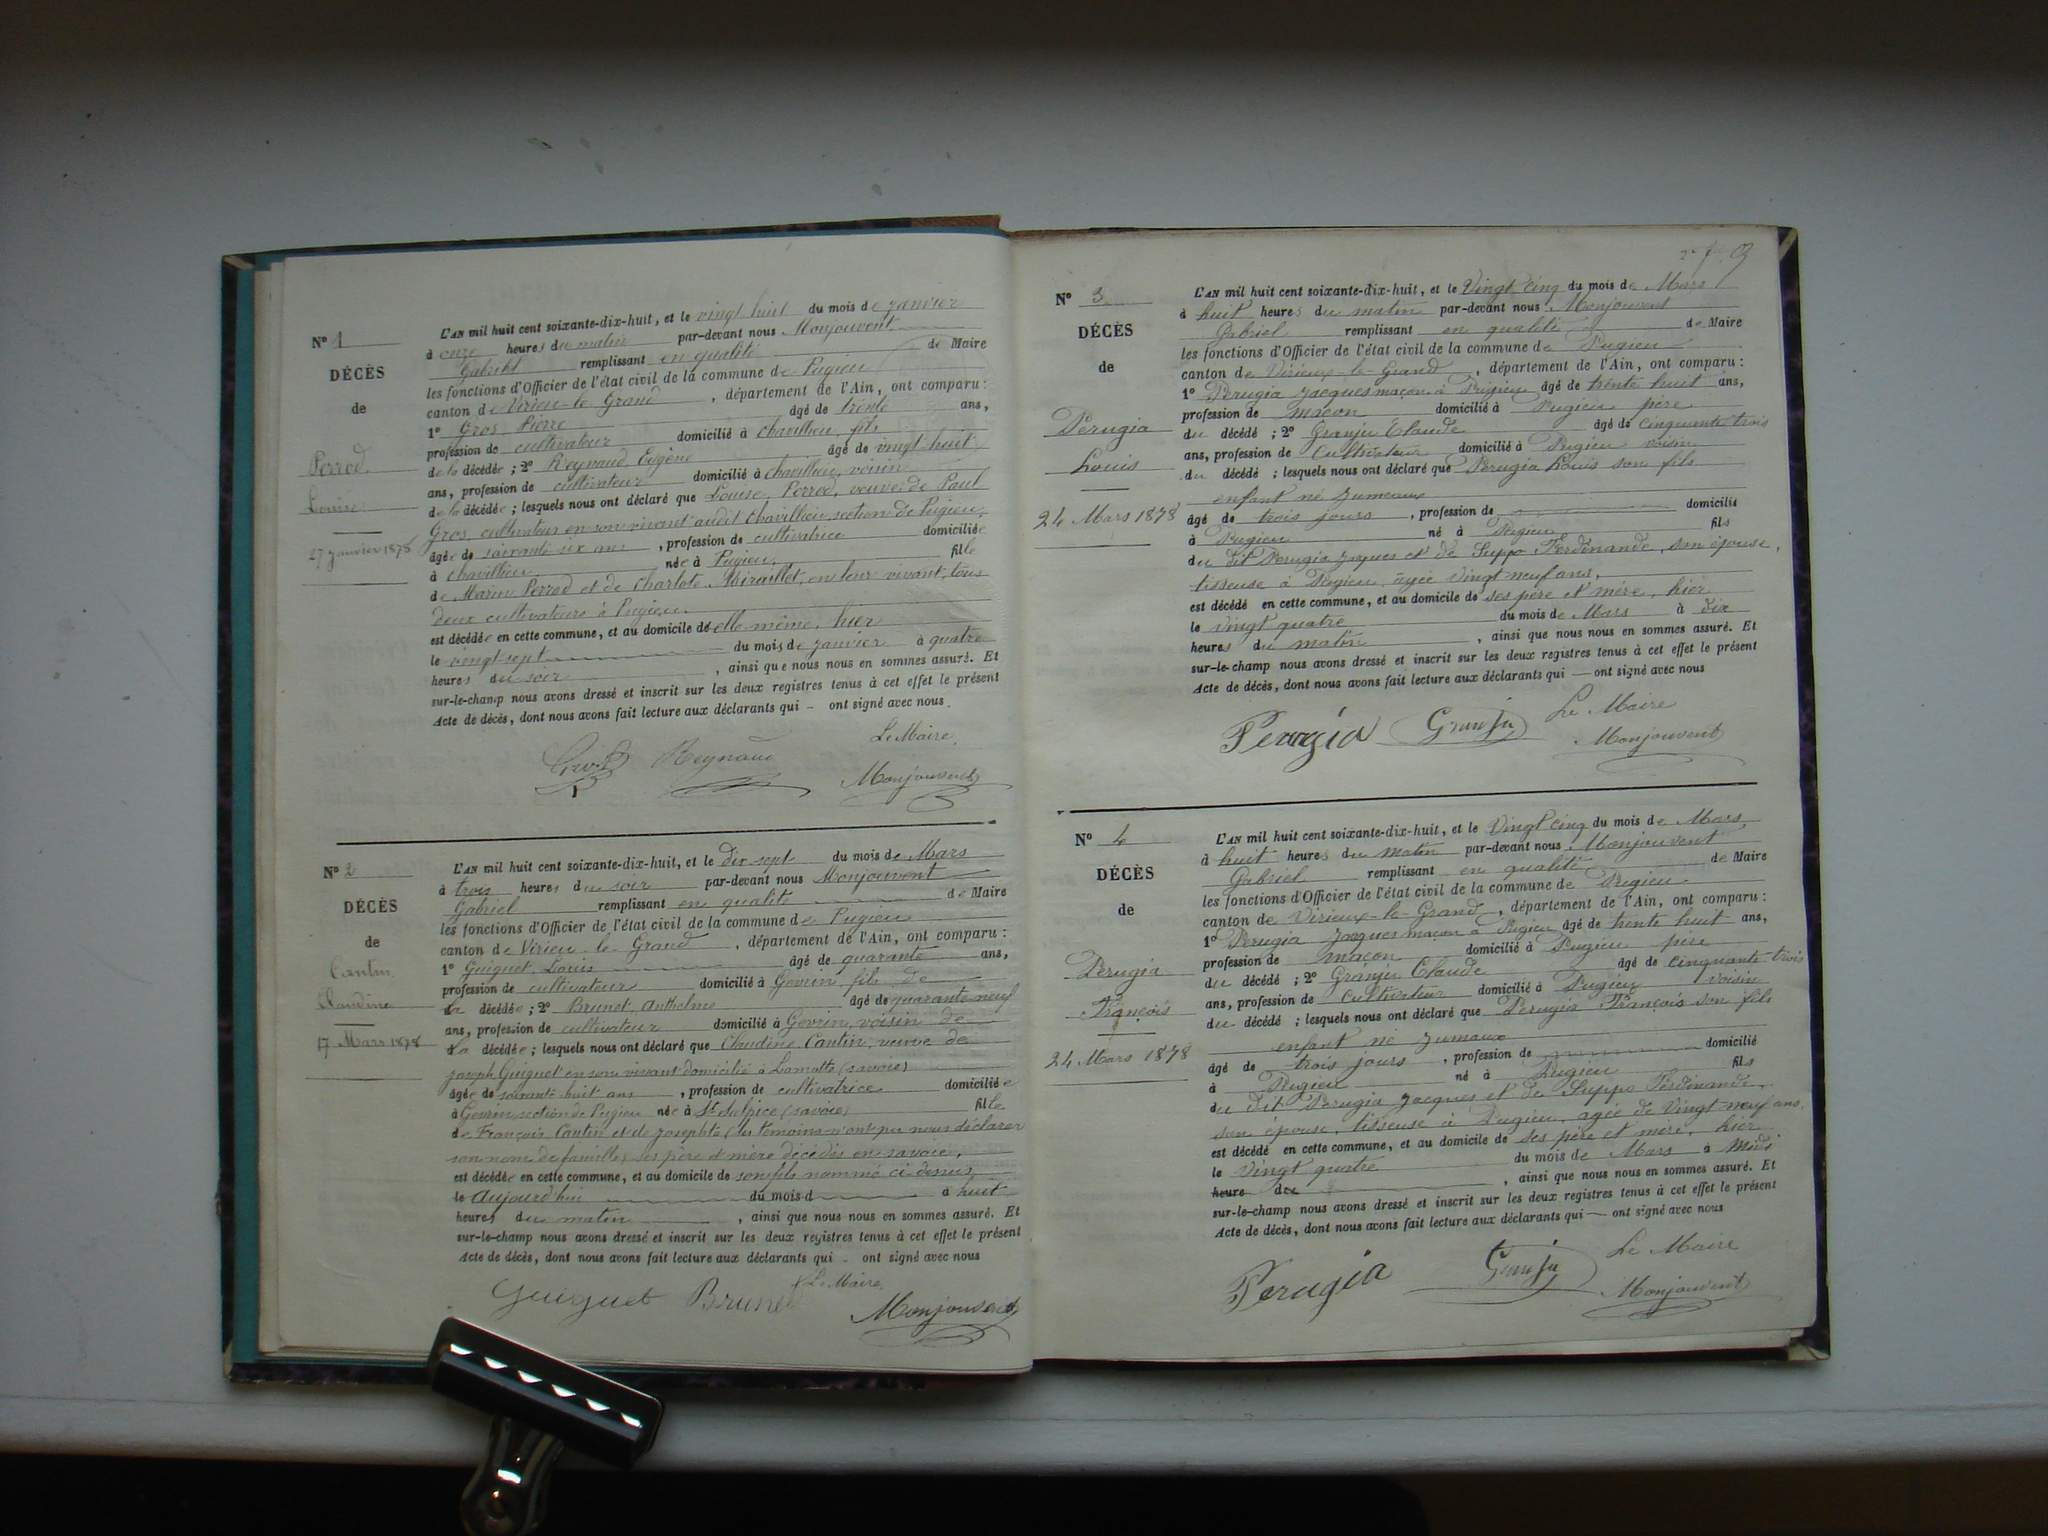 N° 1
DÉCÈS
de
Perrod
Louise
27 janvier 1878
L'AN mil huit cent soixante-dix-huit, et le vingt huit du mois de janvier
à onze heures du matin par-devant nous Monjouvent
Gabriel remplissant en qualité de Maire
les fonctions d'Officier de l'état civil de la commune de Pugieu
canton de Virieu-le-Grand, département de l'Ain, ont comparu :
1° Gros Pierre âgé de trente ans,
profession de cultivateur domicilié à Chavillieu fils
de la décédée ; 2° Reynaud Eugène âgé de vingt huit
ans, profession de cultivateur domicilié à Chavillieu, voisin
de la décédée ; lesquels nous ont déclaré que Louise Perrod, veuve de Paul
Gros, cultivateur en son vivant audit Chavillieu, section de Pugieu,
âgée de soixante six ans, profession de cultivatrice domiciliée
à Chavillieu née à Pugieu, fille
de Marin Perrod et de Charlote Miraillet, en leur vivant, tous
deux cultivateurs à Pugieu.
est décédée en cette commune, et au domicile de elle même, hier
le vingt sept du mois de janvier à quatre
heures du soir, ainsi que nous nous en sommes assuré. Et
sur-le-champ nous avons dressé et inscrit sur les deux registres tenus à cet effet le présent
Acte de décès, dont nous avons fait lecture aux déclarants qui - ont signé avec nous.
Le Maire,
Gros Reynaud Monjouvent
N° 2
DÉCÈS
de
Cantin
Claudine
17 Mars 1878
L'AN mil huit cent soixante-dix-huit, et le dix sept du mois de Mars
à trois heures du soir par-devant nous Monjouvent
Gabriel remplissant en qualité de Maire
les fonctions d'Officier de l'état civil de la commune de Pugieu
canton de Virieu-le-Grand, département de l'Ain, ont comparu :
1° Guiguet Louis âgé de quarante ans,
profession de cultivateur domicilié à Gevrin, fils de
la décédée ; 2° Brunet Anthelme âgé de quarante neuf
ans, profession de cultivateur domicilié à Gevrin, voisin de
la décédée ; lesquels nous ont déclaré que Claudine Cantin, veuve de
joseph Guiguet en son vivant domicilié à Lamotte (savoie)
âgée de soixante huit ans, profession de cultivatrice domiciliée
à Gevrin, section de Pugieu née à St Sulpice (savoie) fille
de François Cantin et de josephte (les témoins n'ont pu nous déclarer
son nom de famille) ses père et mère décédés en savoie,
est décédée en cette commune, et au domicile de son fils nommé ci-dessus
le Aujourd'hui du mois d à huit
heures du matin, ainsi que nous nous en sommes assuré. Et
sur-le-champ nous avons dressé et inscrit sur les deux registres tenus à cet effet le présent
Acte de décès, dont nous avons fait lecture aux déclarants qui - ont signé avec nous
Le Maire,
Guiguet Brunet Monjouvent
N° 3
DÉCÈS
de
Perugia
Louis
24 Mars 1878
L'AN mil huit cent soixante-dix-huit, et le Vingt Cinq du mois de Mars
à huit heures du matin par-devant nous Monjouvent
Gabriel remplissant en qualité de Maire
les fonctions d'Officier de l'état civil de la commune de Pugieu
canton de Virieux-le-Grand, département de l'Ain, ont comparu :
1° Perugia Jacques maçon à Pugieu âgé de trente huit ans,
profession de Maçon domicilié à Pugieu père
du décédé ; 2° Granju Claude âgé de cinquante trois
ans, profession de Cultivateur domicilié à Pugieu voisin
du décédé ; lesquels nous ont déclaré que Perugia Louis son fils
enfant né Jumeaux
âgé de trois jours, profession de domicilié
à Pugieu né à Pugieu fils
du dit Perugia Jaques et de Suppo Ferdinande, son épouse,
tisseuse à Pugieu, agée Vingt-neuf ans,
est décédé en cette commune, et au domicile de ses père et mère, hier
le Vingt quatre du mois de Mars à dix
heures du matin, ainsi que nous nous en sommes assuré. Et
sur-le-champ nous avons dressé et inscrit sur les deux registres tenus à cet effet le présent
Acte de décès, dont nous avons fait lecture aux déclarants qui — ont signé avec nous
Le Maire
Perugia Granju Monjouvent
N° 4
DÉCÈS
de
Perugia
François
24 Mars 1878
L'AN mil huit cent soixante-dix-huit, et le Vingt Cinq du mois de Mars
à huit heures du matin par-devant nous Monjouvent
Gabriel remplissant en qualité de Maire
les fonctions d'Officier de l'état civil de la commune de Pugieu
canton de Virieux-le-Grand, département de l'Ain, ont comparu :
1° Perugia Jacques maçon à Pugieu âgé de trente huit ans,
profession de Maçon domicilié à Pugieu père
du décédé ; 2° Granju Claude âgé de cinquante trois
ans, profession de Cultivateur domicilié à Pugieu voisin
du décédé ; lesquels nous ont déclaré que Perugia François son fils
enfant né Jumaux
âgé de trois jours, profession de domicilié
à Pugieu né à Pugieu fils
du dit Perugia Jacques et de Suppo Ferdinande,
son épouse, tisseuse à Pugieu, agée de Vingt-neuf ans,
est décédé en cette commune, et au domicile de ses père et mère, hier
le Vingt quatre du mois de Mars à Midi
heure du, ainsi que nous nous en sommes assuré. Et
sur-le-champ nous avons dressé et inscrit sur les deux registres tenus à cet effet le présent
Acte de décès, dont nous avons fait lecture aux déclarants qui — ont signé avec nous
Le Maire
Perugia Granju Monjouvent